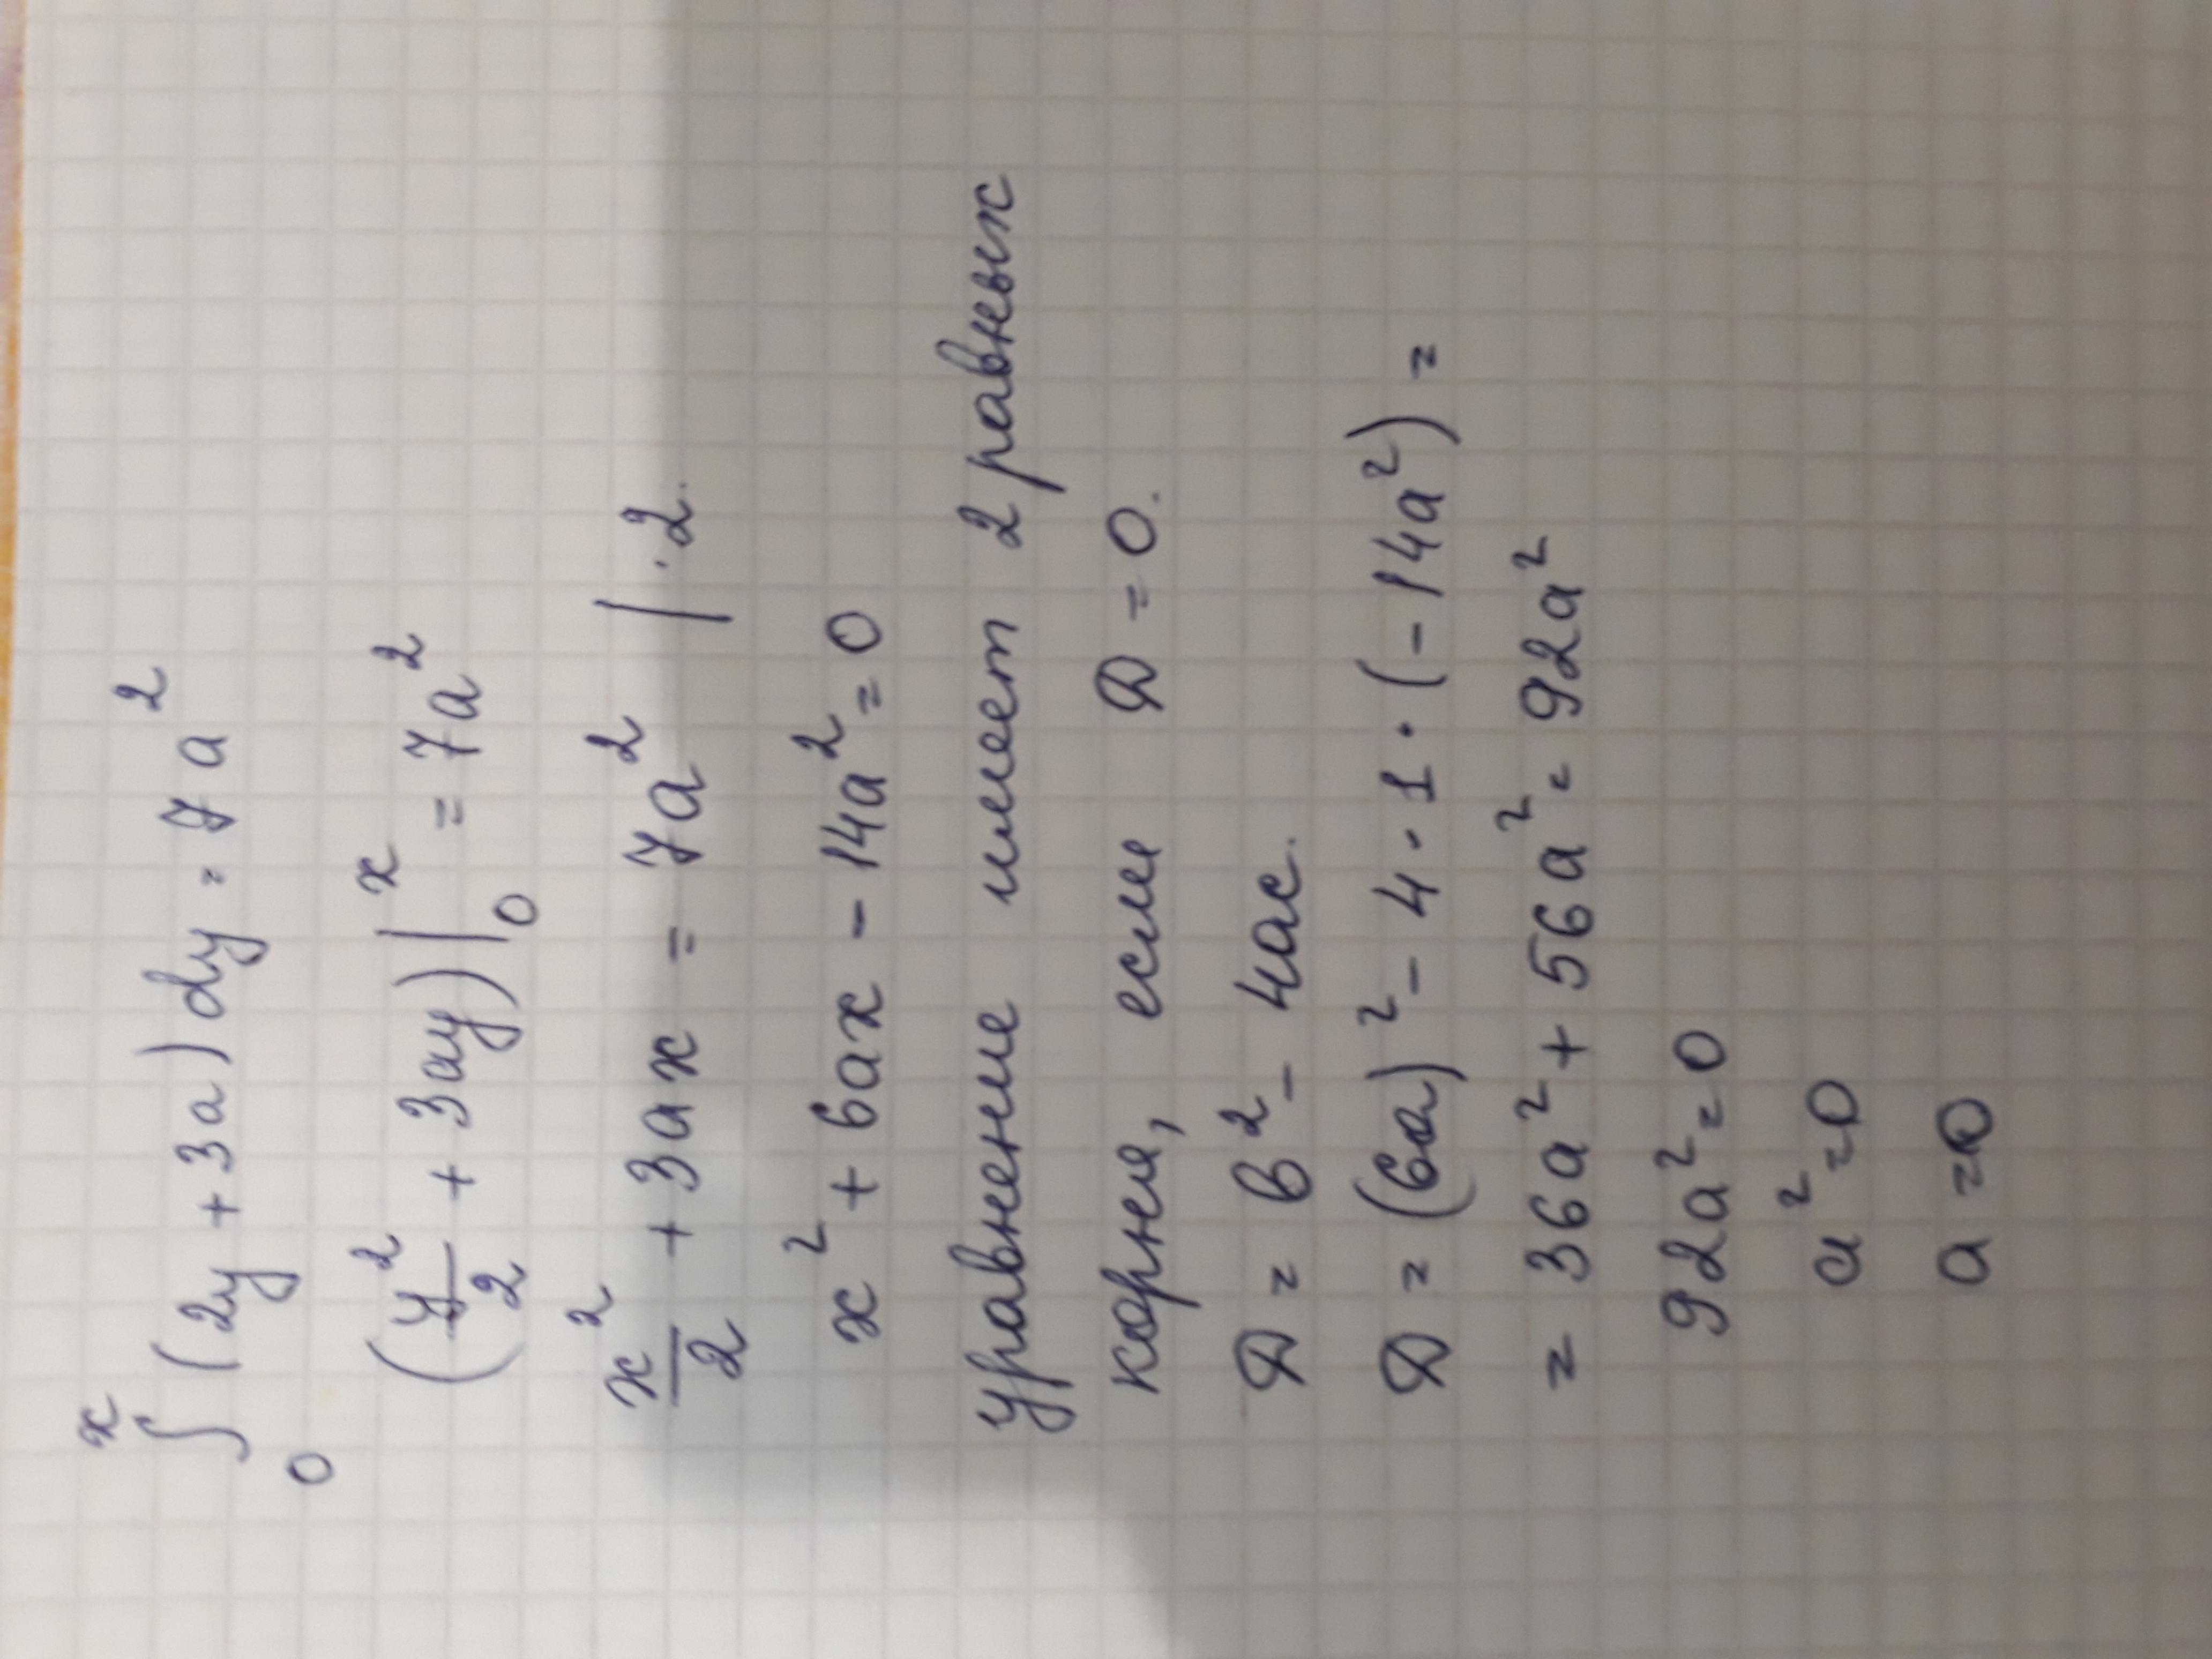 ∫₀ˣ (2y + 3a) dy = 7a²
(y²/2 + 3ay)|₀ˣ = 7a²
x²/2 + 3ax = 7a² | · 2.
x² + 6ax - 14a² = 0
уравнение имеет 2 равных
корня, если D = 0.
D = b² - 4ac.
D = (6a)² - 4 · 1 · (- 14a²) =
= 36a² + 56a² = 92a²
92a² = 0
a² = 0
a = 0